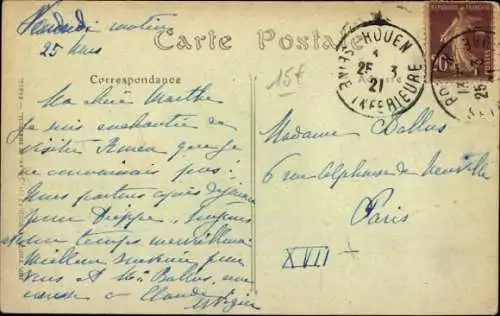 Vendredi matin
25 Mars
Carte Postale
Correspondance
15€
ROUEN
25 3
21
SEINE INFERIEURE
REPUBLIQUE FRANÇAISE
40
25
Ma chère Marthe
Je suis enchantée de
visiter Rouen que je
ne connaissais pas!
Nous partons après déjeuner
pour Dieppe, toujours
un temps merveilleux
Meilleurs souvenirs pour
vous et Mr Ballus, une
caresse à Claude
Madame Ballus
6 rue Alphonse de Neuville
Paris
XVII